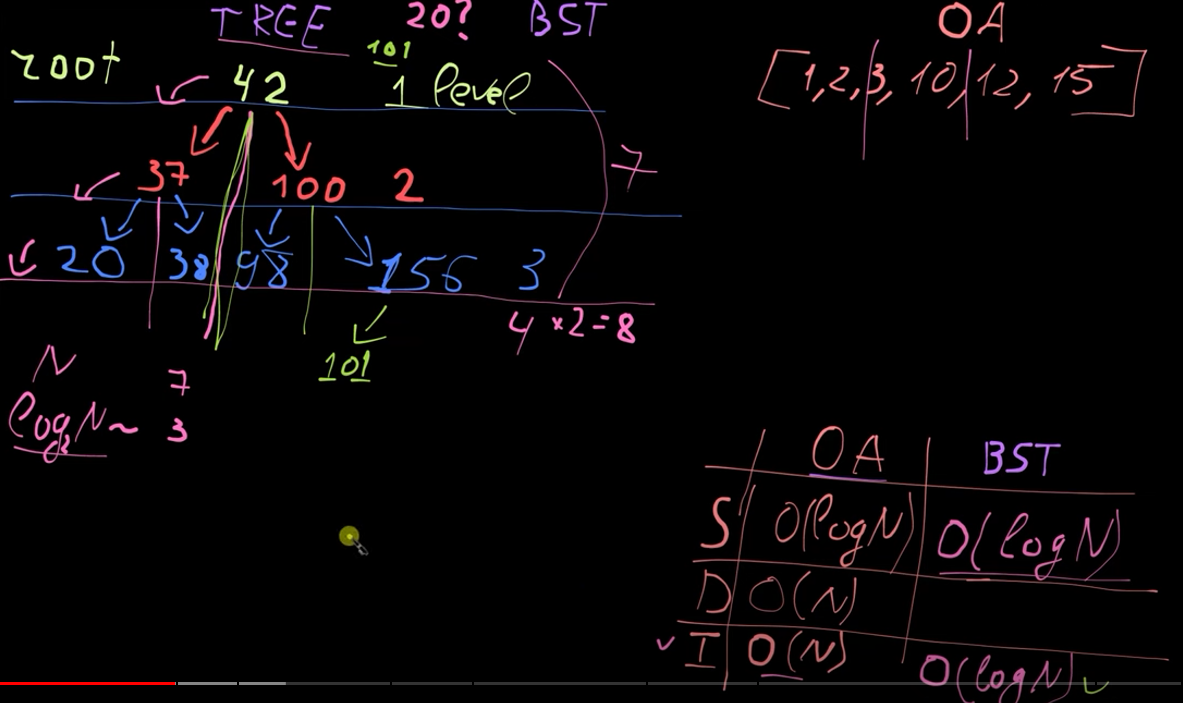 TREE 20? BST
root 42 101 1 level
37 100 2 7
20 38 98 156 3
101 4 × 2 = 8
N 7
log₂N ~ 3
OA
[1,2,3, 10, 12, 15]
OA BST
S O(logN) O(logN)
D O(N)
I O(N) O(logN)